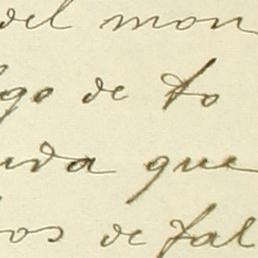 del mon
go de to
uda que
os de fal